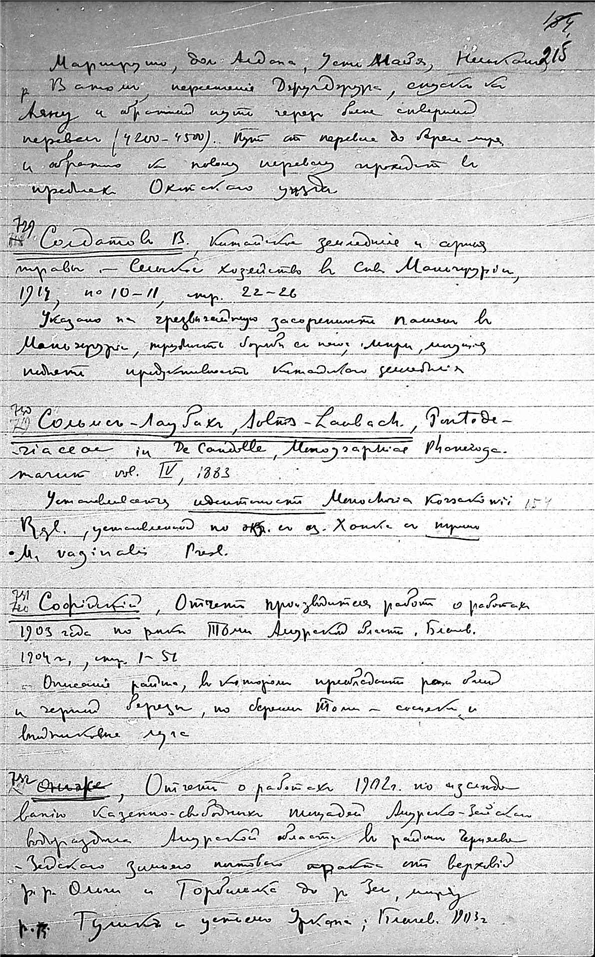 184
215
Маршруты, дол Алдана, Усть Майя, Нелькана,
р Ватом, пересечение Джугджура, спуск к
Аяну и обратный путь через более северный
перевал (4200-4500). Путь от перевала до берега моря
и обратно к новому перевалу проходит в
пределах Охотского уезда
729
Солдатовъ В. Китайское земледѣлие и сорныя
травы - Сельское хозяйство в Сѣв. Маньчжуріи,
1914, № 10-11, стр. 22-26
Указано на чрезвычайную засоренность пашен в
Маньчжуріи, трудность борьбы с нею, мѣры, могущія
поднять продуктивность китайского земледѣлія
730
Сольмсъ-Лаубахъ, Solms-Laubach., Pontede-
riaceae in De Candolle, Monographiae Phaneroga-
marum vol. IV, 1883
Устанавливается идентичность Monochoria Korsakowii 154
Rgl., установленной по экз. с оз. Ханка с
M. vaginalis Presl.
731
Софійскій, Отчетъ производителя работ о работах
1903 года по рѣкѣ Томи Амурской области. Благов.
1904 г., стр. 1-51
Описаніе района, в котором преобладают бѣлой
и черной березы, по берегам Томи -
луга
732
Онъ же, Отчетъ о работах 1902 г. по изслѣдо
ванію казенно-свободных площадей Амурско-Зейскаго
водораздѣла Амурской области в районѣ Черняево
-Зейскаго зимняго почтоваго тракта от верховій
р.р. Ольги и до р Зеи, между
р.р. и устьем Уркана; Благов. 1903 г